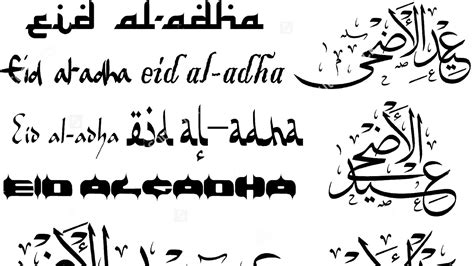 eid al-adha
Eid al-adha eid al-adha
عيد الأضحى
Eid al-adha eid al-adha
عيد الأضحى
EID ALCADHA
عيد الأضحى